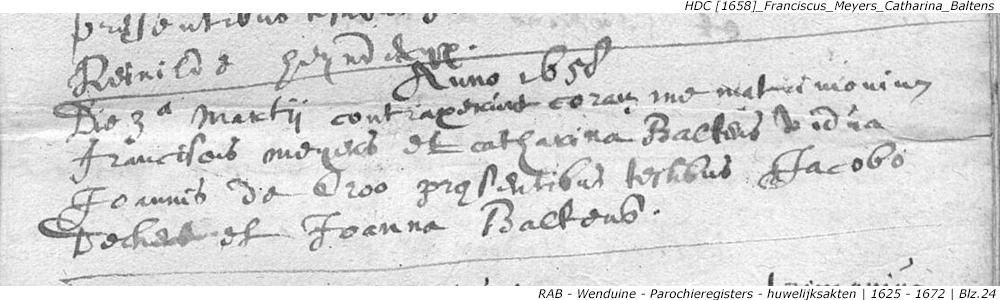 HDC [1658]_Franciscus_Meyers_Catharina_Baltens
præsentibus
Reinilde Heyndericx.
Anno 1658
Die 3ª Martij contraxerunt coram me matrimonium
franciscus meyers et catharina Baltens vidua
Joannis de Croo præsentibus testibus Jacobo
et Joanna Baltens.
RAB - Wenduine - Parochieregisters - huwelijksakten | 1625 - 1672 | Blz.24